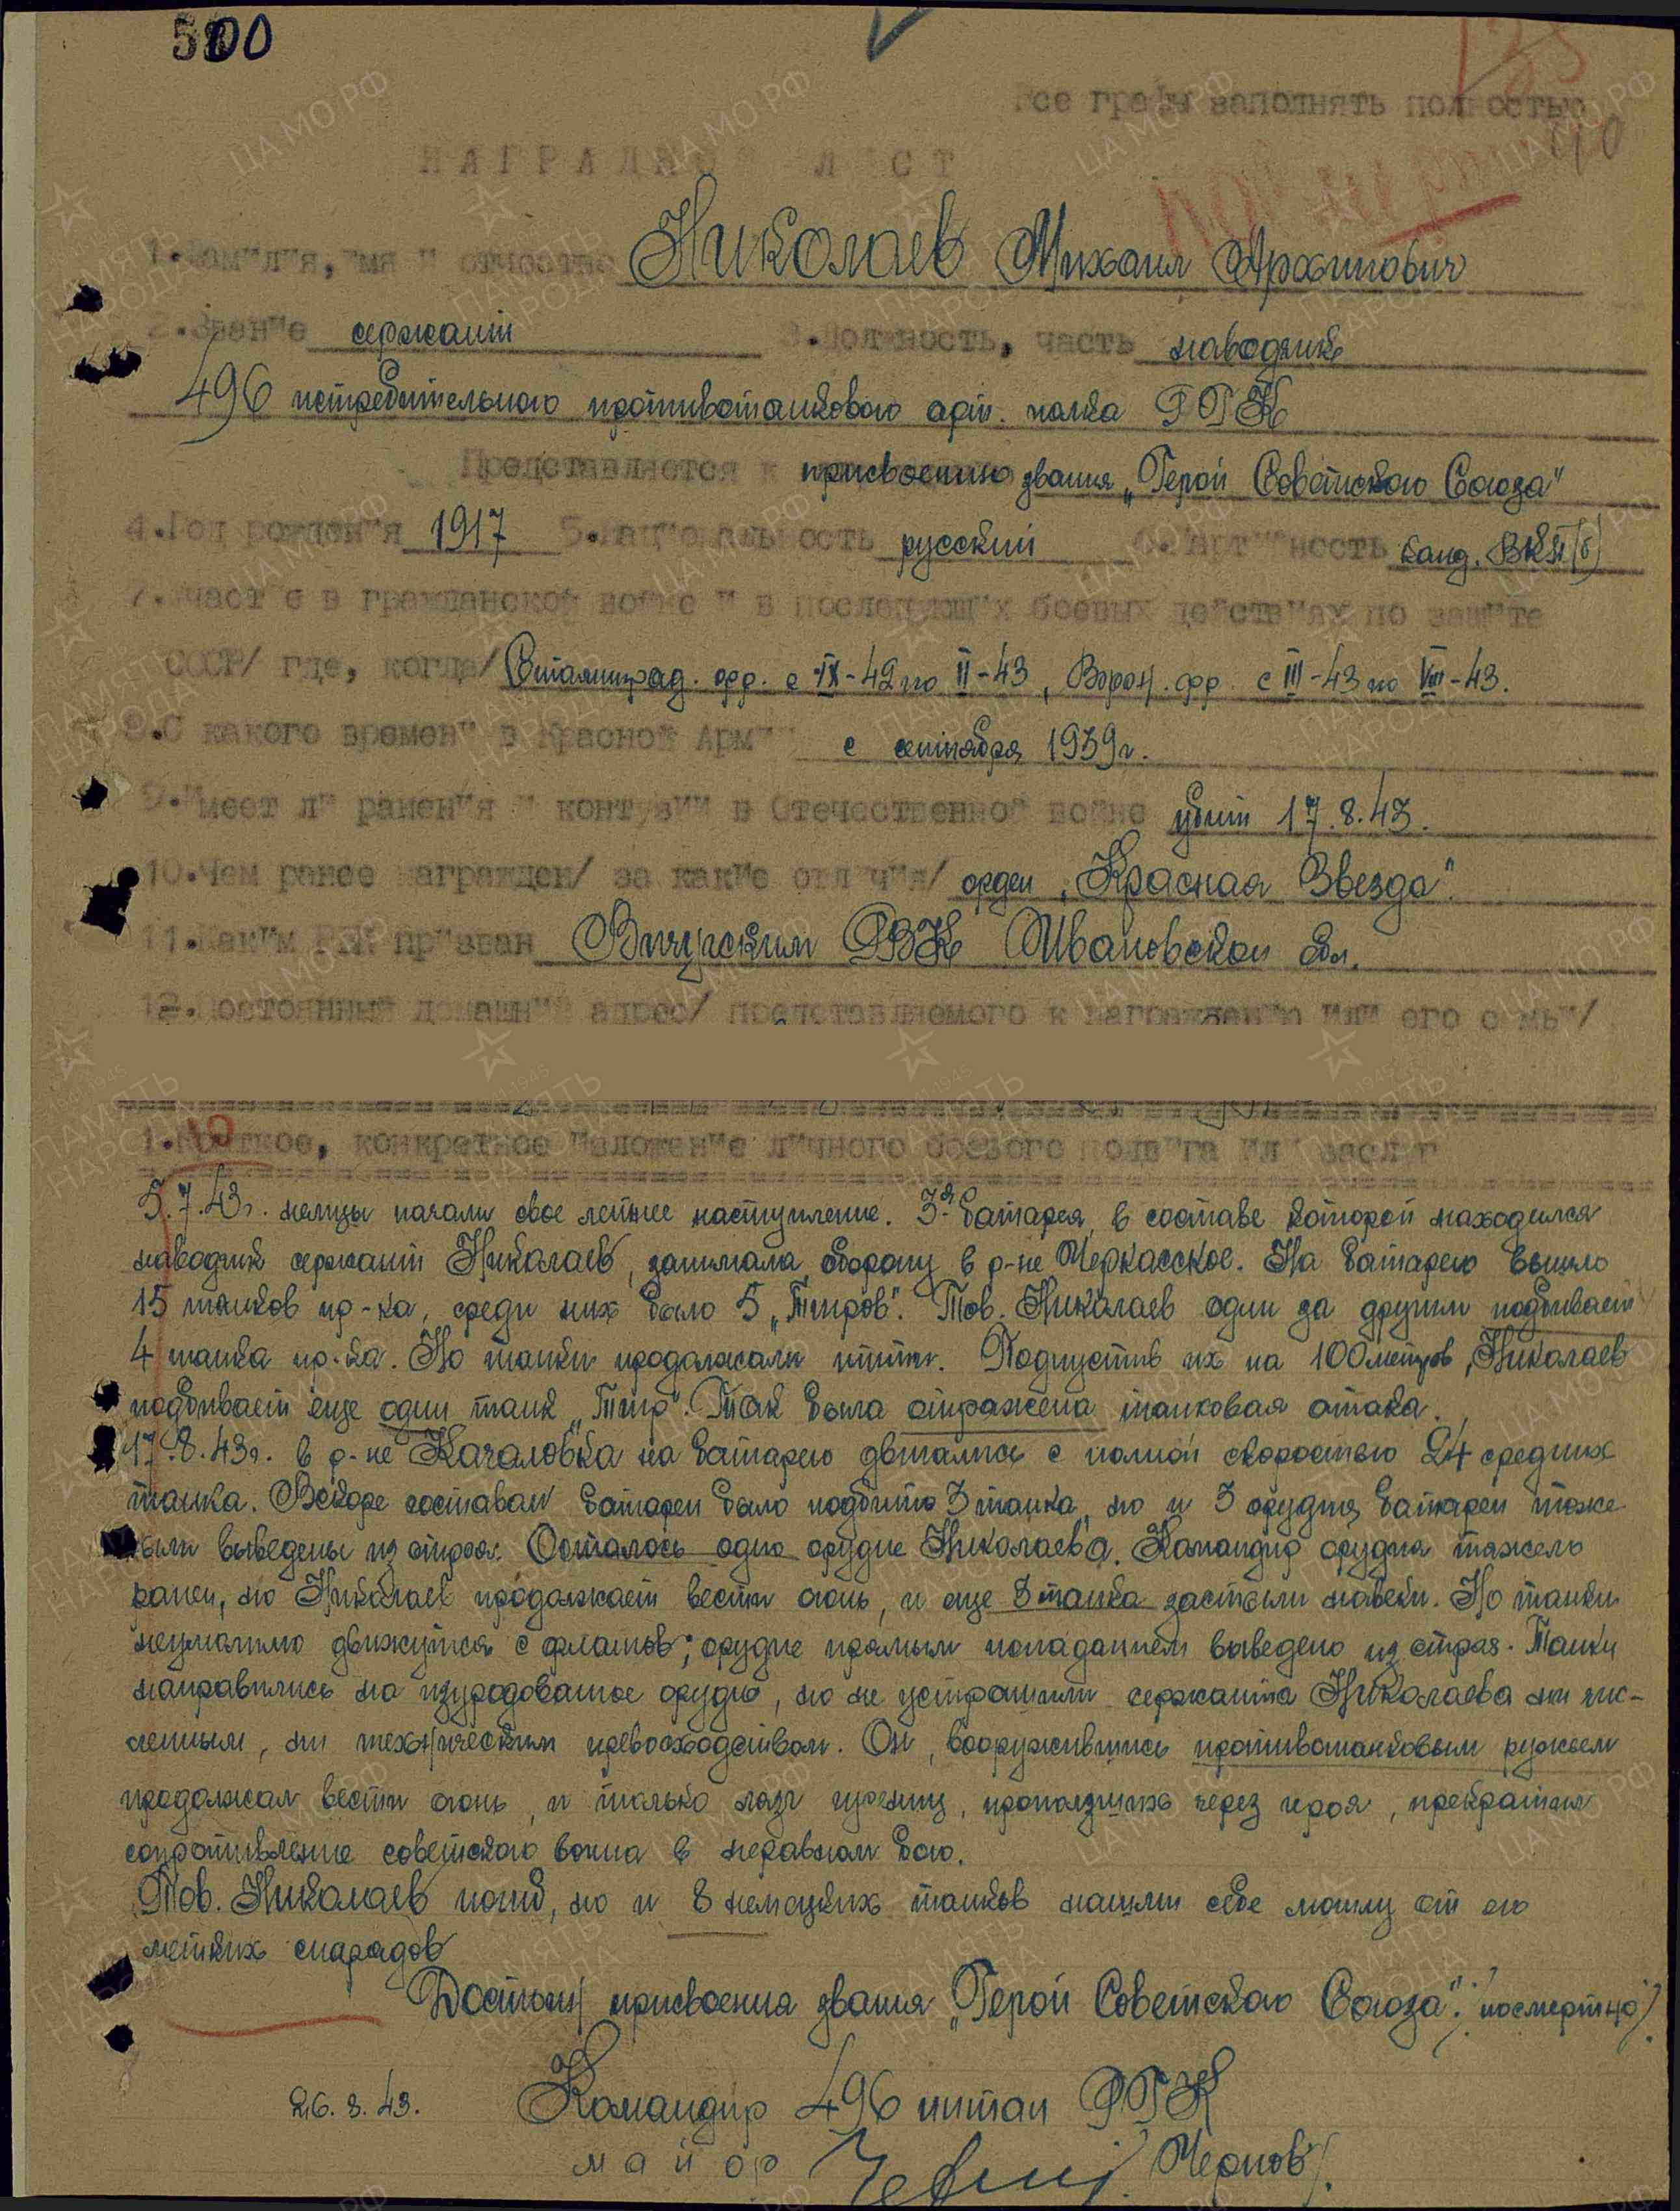 500
135
Все графы заполнять полностью
90
НАГРАДНОЙ ЛИСТ
1.Фамилия,имя и отчество Николаев Михаил Архипович
2.Звание сержант 3.Должность, часть наводчик
496 истребительного противотанкового арт. полка РГК
Представляется к присвоению звания „Герой Советского Союза"
4.Год рождения 1917 5.Национальность русский 6.Партийность канд. ВКП(б)
7.Участие в гражданской войне и в последующих боевых действиях по защите
СССР/ где, когда/ Сталинград. фр. с IX-42 по II-43, Ворон. фр. с III-43 по VIII-43.
8.С какого времени в Красной Армии с сентября 1939г.
9.Имеет ли ранения и контузии в Отечественной войне убит 17.8.43.
10.Чем ранее награжден/ за какие отличия/ орден „Красная Звезда".
11.Каким РВК призван Вичугским РВК Ивановской обл.
12.Постоянный домашний адрес/ представляемого к награждению или его семьи/
10
1.Краткое, конкретное изложение личного боевого подвига или заслуг
5.7.43г. немцы начали свое летнее наступление. 3-я батарея, в составе которой находился
наводчик сержант Николаев, занимала оборону в р-не Черкасское. На батарею вышло
15 танков пр-ка, среди них было 5 „Тигров". Тов. Николаев один за другим подбивает
4 танка пр-ка. Но танки продолжали итти. Подпустив их на 100 метров, Николаев
подбивает еще один танк „Тигр". Так была отражена танковая атака.
17.8.43г. в р-не Качаловка на батарею двигались с полной скоростью 24 средних
танка. Вскоре составом батареи было подбито 3 танка, но и 3 орудия батареи тоже
были выведены из строя. Осталось одно орудие Николаева. Командир орудия тяжело
ранен, но Николаев продолжает вести огонь, и еще 3 танка застыли навеки. Но танки
неумолимо движутся с флангов; орудие прямым попаданием выведено из строя. Танки
направились на изуродованное орудие, но не устрашили сержанта Николаева ни чис-
ленным, ни техническим превосходством. Он, вооружившись противотанковым ружьем
продолжал вести огонь, и только лязг гусениц, проползших через героя, прекратил
сопротивление советского воина в неравном бою.
Тов. Николаев погиб, но и 8 немецких танков нашли себе могилу от его
метких снарядов
Достоин присвоения звания „Герой Советского Союза" /посмертно/.
26.8.43. Командир 496 иптап РГК
майор /Чернов/.
ЦА МО РФ
ПАМЯТЬ НАРОДА